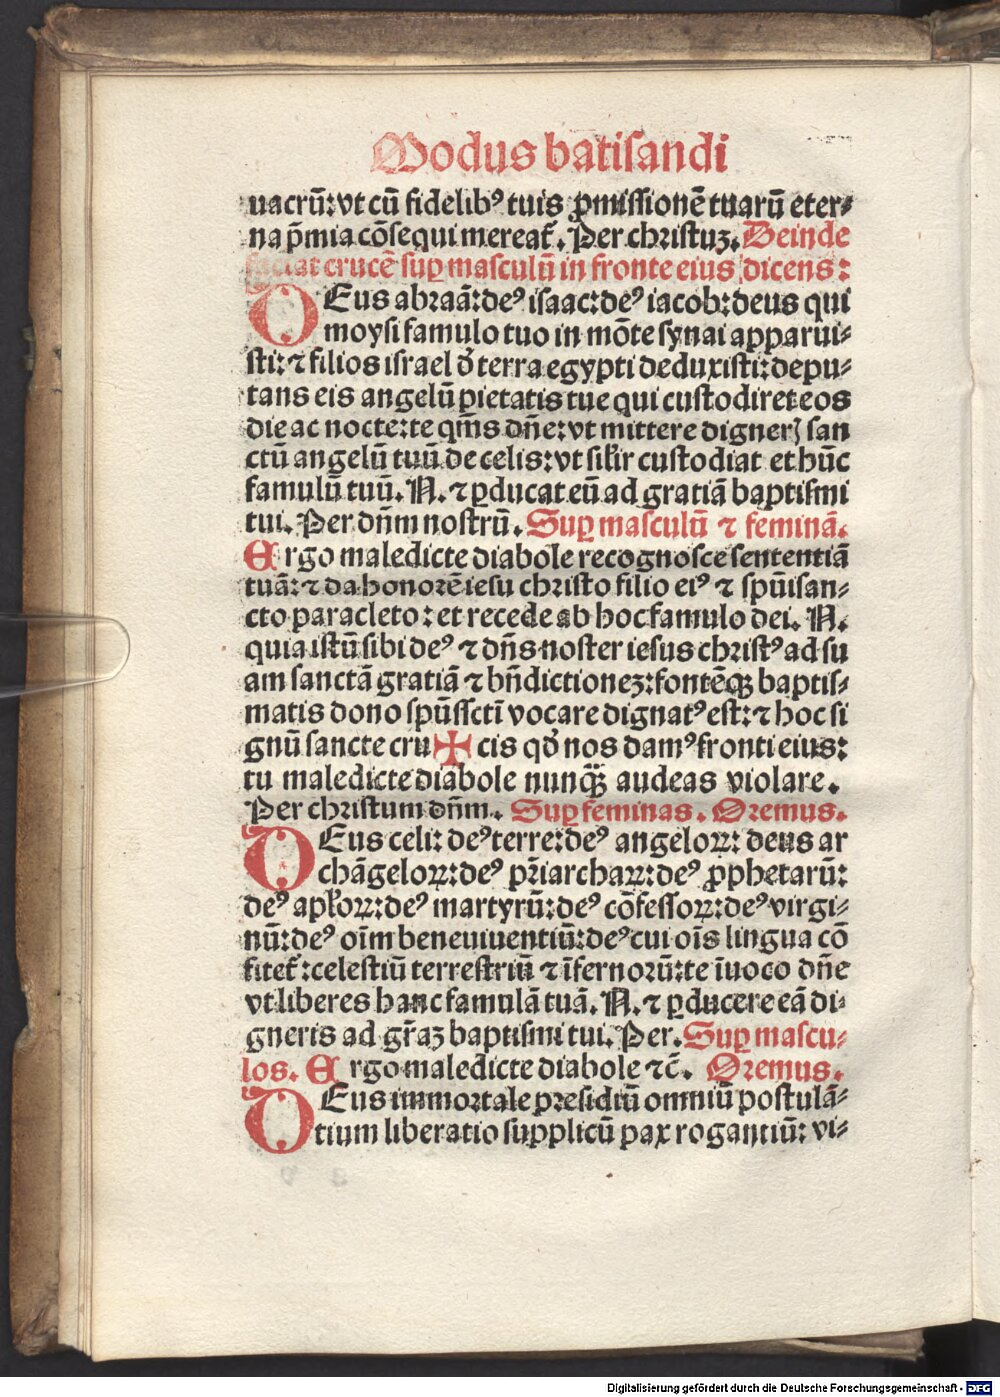 Modus batisandi
uacrū: vt cū fidelibꝰ tuis ꝓmissionē tuarū eter⸗
na p̄mia cōsequi mereat᷑. Per christuꝫ. Deinde
faciat crucē suꝑ masculū in fronte eius dicens:
DEus abraā: deꝰ isaac: deꝰ iacob: deus qui
moysi famulo tuo in mōte synai apparui⸗
sti: ⁊ filios israel d̓ terra egypti deduxisti: depu⸗
tans eis angelū pietatis tue qui custodiret eos
die ac nocte: te qm̄s dn̄e: vt mittere digner̄ san
ctū angelū tuū de celis: vt sil̓ir custodiat et hūc
famulū tuū. N. ⁊ ꝑducat eū ad gratiā baptismi
tui. Per dn̄m nostrū. Suꝑ masculū ⁊ feminā.
Ergo maledicte diabole recognosce sententiā
tuā: ⁊ da honorē iesu christo filio eiꝰ ⁊ spūi san⸗
cto paracleto: et recede ab hoc famulo dei. N.
quia istū sibi deꝰ ⁊ dn̄s noster iesus christꝰ ad su
am sanctā gratiā ⁊ bn̄dictioneꝫ: fontēqꝫ baptis⸗
matis dono spūssctī vocare dignatꝰ est: ⁊ hoc si
gnū sancte cru✠cis qd̓ nos damꝰ fronti eius:
tu maledicte diabole nunqꝫ̄ audeas violare.
Per christum dn̄m. Suꝑ feminas. Oremus.
DEus celi: deꝰ terre: deꝰ angeloꝝ: deus ar
chāgeloꝝ: deꝰ pr̄iarchaꝝ: deꝰ ꝓphetarū:
deꝰ apl̓oꝝ: deꝰ martyrū: deꝰ cōfessoꝝ: deꝰ virgi⸗
nū: deꝰ oīm bene viuentiū: deꝰ cui oīs lingua cō
fitet᷑: celestiū terrestriū ⁊ īfernorū: te īuoco dn̄e
vt liberes hanc famulā tuā. N. ⁊ ꝑducere eā di⸗
gneris ad gr̄aꝫ baptismi tui. Per. Suꝑ mascu⸗
los. Ergo maledicte diabole ⁊c̄. Oremus.
DEus immortale presidiū omniū postulā⸗
tium liberatio supplicū pax rogantiū: vi⸗
Digitalisierung gefördert durch die Deutsche Forschungsgemeinschaft - DFG